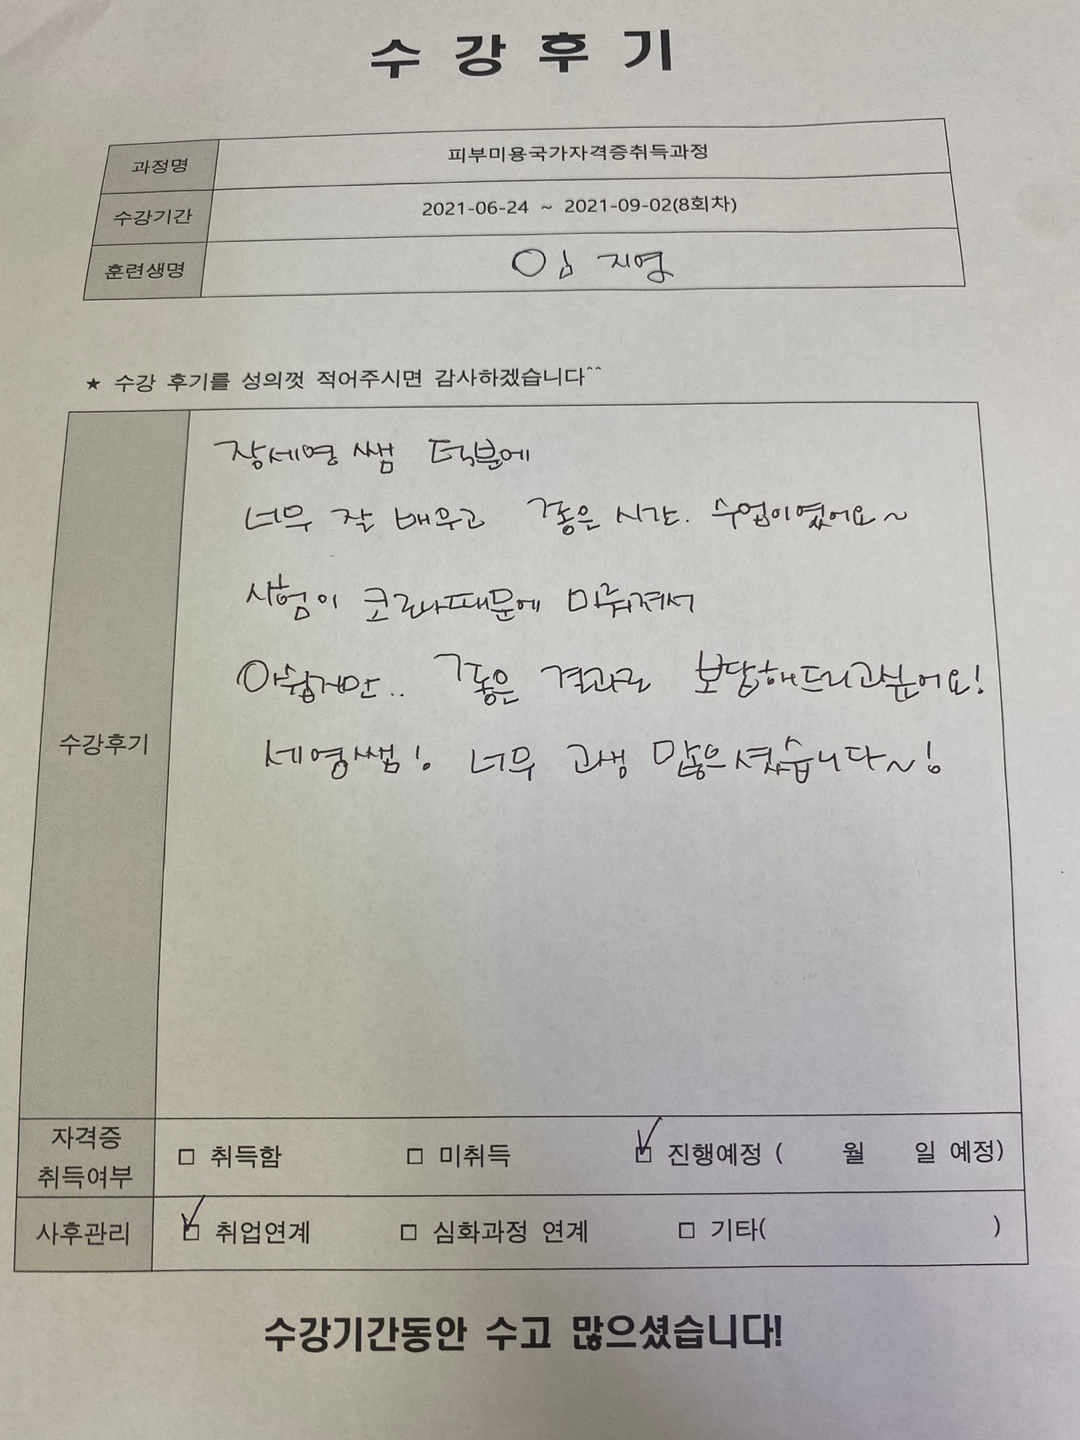 수강후기
과정명 피부미용국가자격증취득과정
수강기간 2021-06-24 ~ 2021-09-02(8회차)
훈련생명 임 지영
★ 수강 후기를 성의껏 적어주시면 감사하겠습니다^^
수강후기
장세영 쌤 덕분에
너무 잘 배우고 좋은 시간. 수업이였어요~
시험이 코로나때문에 미뤄져서
아쉽지만.. 좋은 결과로 보답해드리고싶어요!
세영쌤! 너무 고생 많으셨습니다~!
자격증 취득여부 □ 취득함 □ 미취득 ☑ 진행예정 ( 월 일 예정)
사후관리 ☑ 취업연계 □ 심화과정 연계 □ 기타( )
수강기간동안 수고 많으셨습니다!